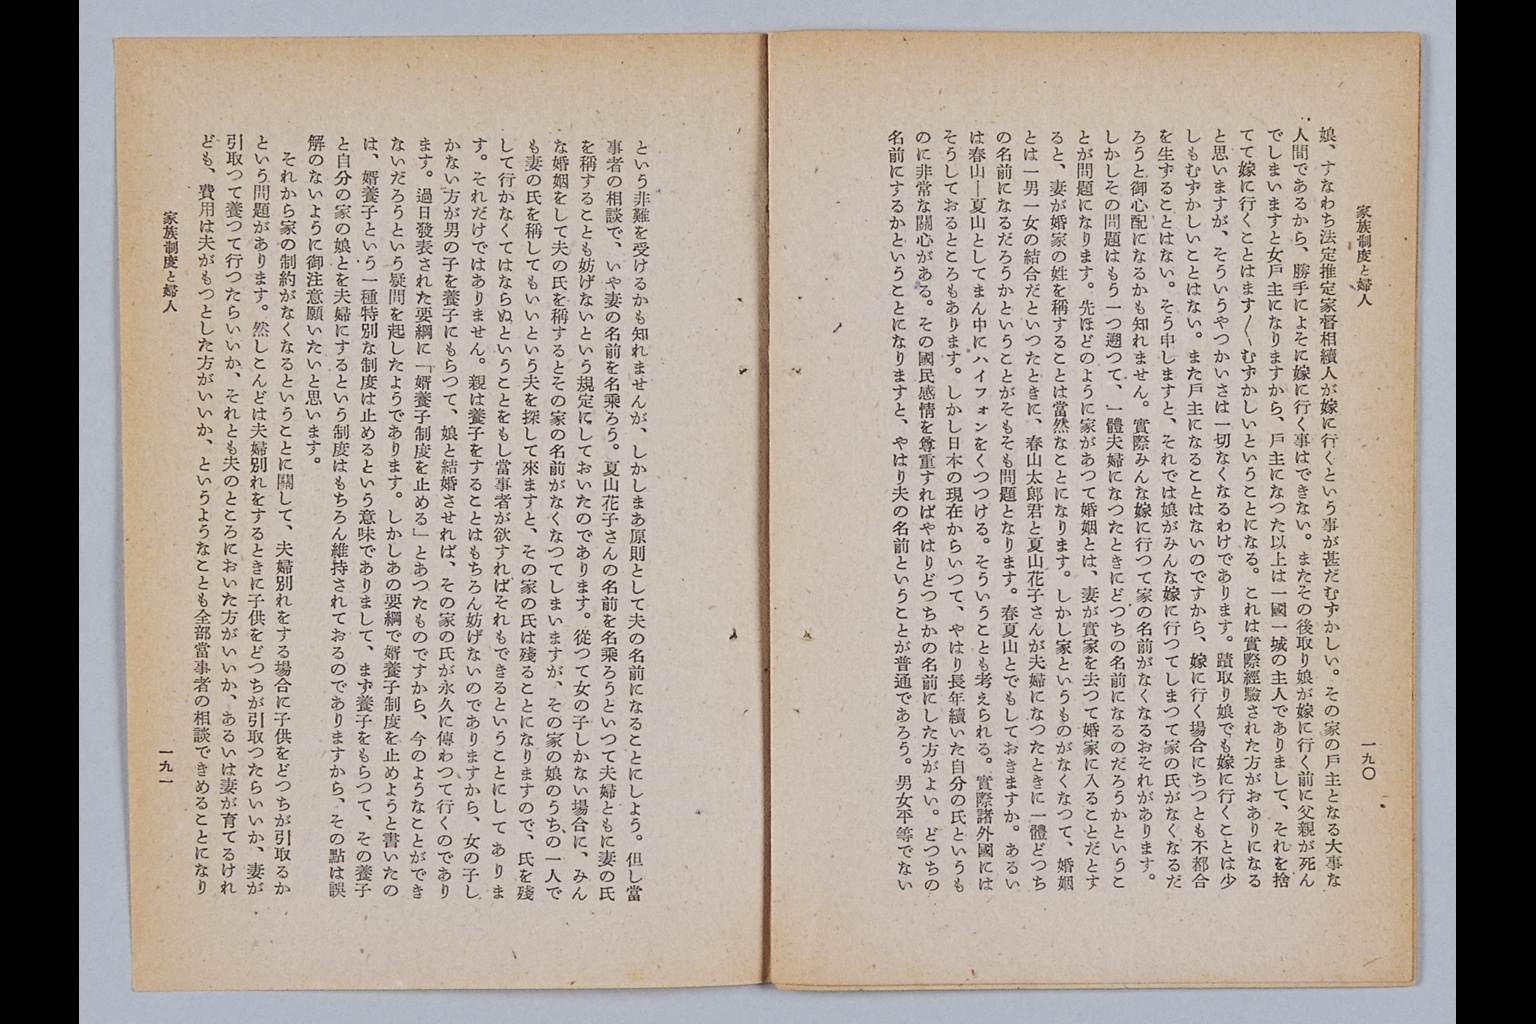 家族制度と婦人
一九〇
娘、すなわち法定推定家督相續人が嫁に行くという事が甚だむずかしい。その家の戶主となる大事な
人間であるから、勝手によそに嫁に行く事はできない。またその後取り娘が嫁に行く前に父親が死ん
でしまいますと女戶主になりますから、戶主になつた以上は一國一城の主人でありまして、それを捨
てて嫁に行くことはます〱むずかしいということになる。これは實際經驗された方がおありになる
と思いますが、そういうやつかいさは一切なくなるわけであります。蹟取り娘でも嫁に行くことは少
しもむずかしいことはない。また戶主になることはないのですから、嫁に行く場合にちつとも不都合
を生ずることはない。そう申しますと、それでは娘がみんな嫁に行つてしまつて家の氏がなくなるだ
ろうと御心配になるかも知れません。實際みんな嫁に行つて家の名前がなくなるおそれがあります。
しかしその問題はもう一つ遡つて、一體夫婦になつたときにどつちの名前になるのだろうかというこ
とが問題になります。先ほどのように家があつて婚姻とは、妻が實家を去つて婚家に入ることだとす
ると、妻が婚家の姓を稱することは當然なことになります。しかし家というものがなくなつて、婚姻
とは一男一女の結合だといつたときに、春山太郞君と夏山花子さんが夫婦になつたときに一體どつち
の名前になるだろうかということがそもそも問題となります。春夏山とでもしておきますか。あるい
は春山―夏山としてまん中にハイフォンをくつつける。そういうことも考えられる。實際諸外國には
そうしておるところもあります。しかし日本の現在からいつて、やはり長年續いた自分の氏というも
のに非常な關心がある。その國民感情を尊重すればやはりどつちかの名前にした方がよい。どつちの
名前にするかということになりますと、やはり夫の名前ということが普通であろう。男女平等でない
という非難を受けるかも知れませんが、しかしまあ原則として夫の名前になることにしよう。但し當
事者の相談で、いや妻の名前を名乘ろう。夏山花子さんの名前を名乘ろうといつて夫婦ともに妻の氏
を稱することも妨げないという規定にしておいたのであります。從つて女の子しかない場合に、みん
な婚姻をして夫の氏を稱するとその家の名前がなくなつてしまいますが、その家の娘のうちの一人で
も妻の氏を稱してもいいという夫を探して來ますと、その家の氏は殘ることになりますので、氏を殘
して行かなくてはならぬということをもし當事者が欲すればそれもできるということにしてありま
す。それだけではありません。親は養子をすることはもちろん妨げないのでありますから、女の子し
かない方が男の子を養子にもらつて、娘と結婚させれば、その家の氏が永久に傳わつて行くのであり
ます。過日發表された要綱に「婿養子制度を止める」とあつたものですから、今のようなことができ
ないだろうという疑問を起したようであります。しかしあの要綱で婿養子制度を止めようと書いたの
は、婿養子という一種特別な制度は止めるという意味でありまして、まず養子をもらつて、その養子
と自分の家の娘とを夫婦にするという制度はもちろん維持されておるのでありますから、その點は誤
解のないように御注意願いたいと思います。
それから家の制約がなくなるということに關して、夫婦別れをする場合に子供をどつちが引取るか
という問題があります。然しこんどは夫婦別れをするときに子供をどつちが引取つたらいいか、妻が
引取つて養つて行つたらいいか、それとも夫のところにおいた方がいいか、あるいは妻が育てるけれ
ども、費用は夫がもつとした方がいいか、というようなことも全部當事者の相談できめることになり
家族制度と婦人
一九一